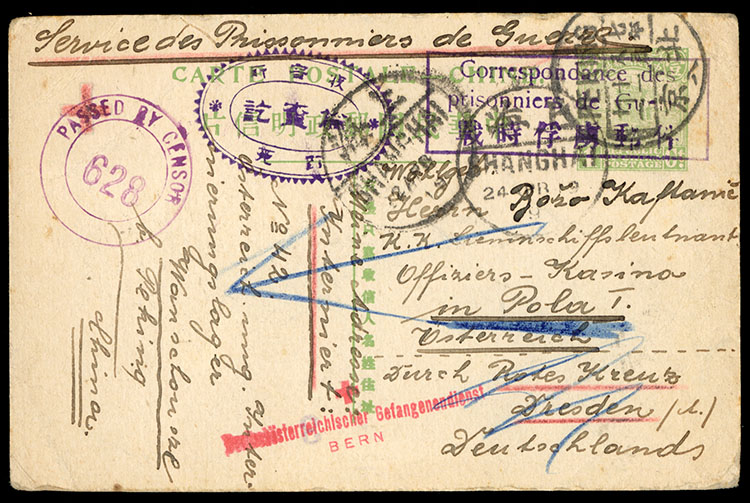 Service des Prisonniers de Guerre
CARTE POSTALE CHINE
Correspondance des
prisoniers de Guerre
戰時俘虜郵件
收容所
檢查訖
PASSED BY CENSOR
628
SHANGHAI
SHANGHAI
24
Herrn Božo Kaftanić
K. K. Linienschiffsleutnant
Offiziers-Kasino
in Pola I.
Österreich
Durch Rotes Kreuz
Dresden (A.)
Deutschlands
Meine Adresse:
Interniert:
No 42
österreich ung. Inter-
nierungslager
Wanschouyüe
b/ Peking
China.
österreichischer Gefangenendienst
BERN